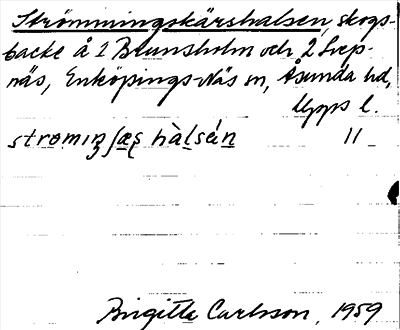 Strömmingskärshalsen, skogs-
backe å 1 Brunsholm och 2 Svep-
näs, Enköpings-Näs sn, Åsunda hd,
Upps l.
11
Birgitta Carlsson, 1959